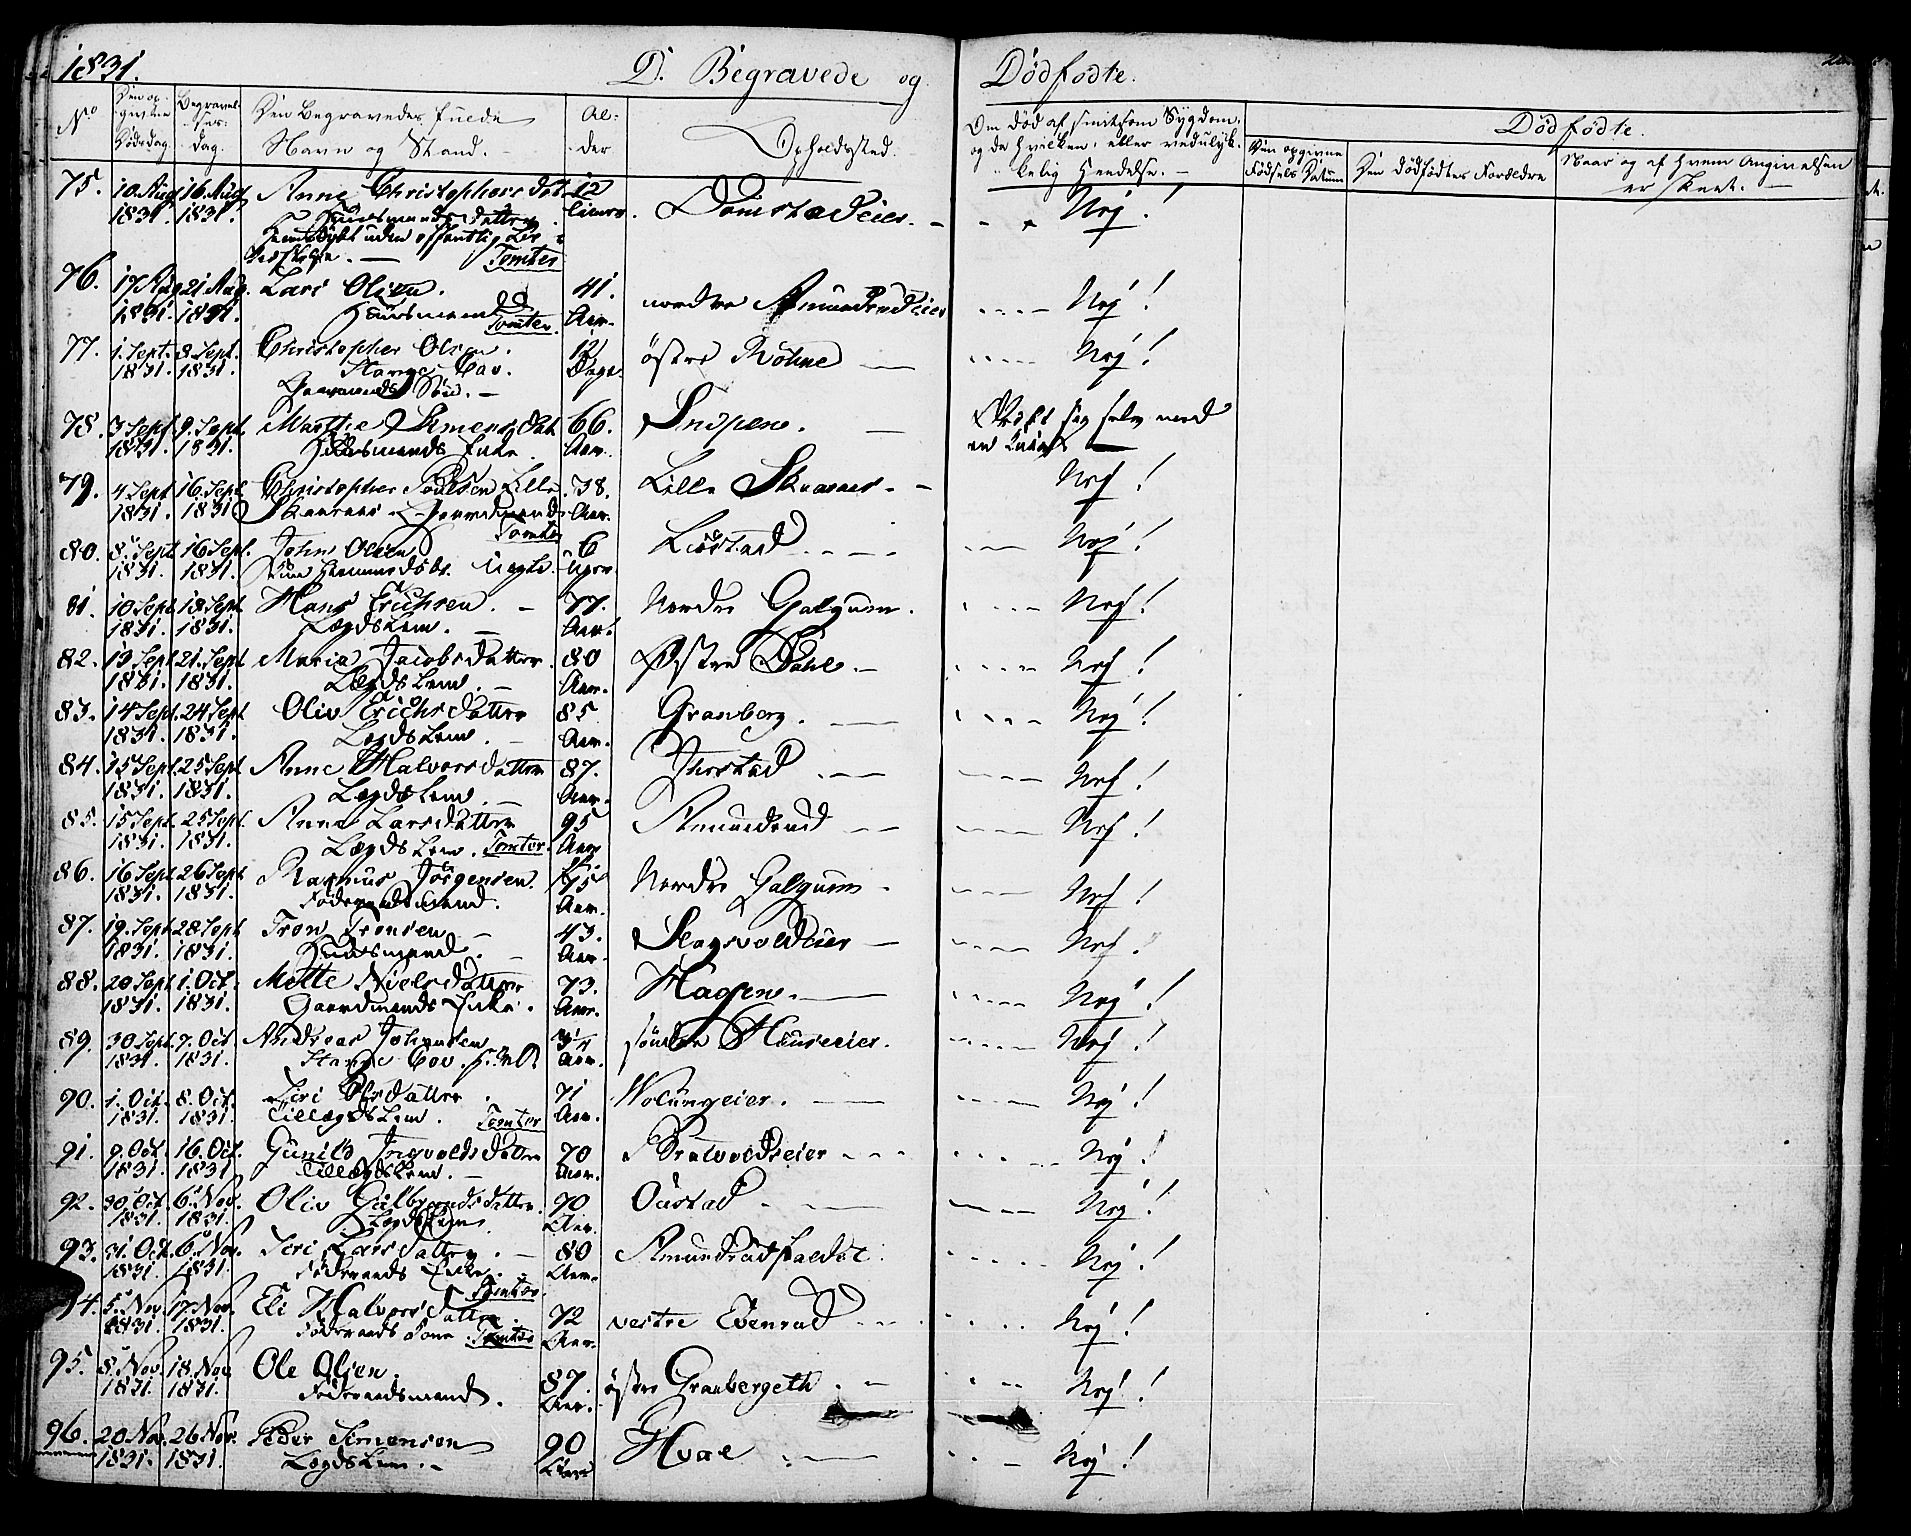 1831.
D. Begravede og Dødfødte.
No
Den opgivne Dødsdag.
Begravelsesdag.
Den Begravedes fulde Navn og Stand.
Alder
Opholdssted.
Om død af smitsom Sygdom, og da hvilken, eller ved ulykkelig Hendelse.
Dødfødte.
Den opgivne Fødsels Datum
Den dødfødtes Forældre
Naar og af hvem Angivelsen er skeet.
75. 10 Aug 16 Aug Anne Christophersdat. 12
1831. 1831. Huusmands datter. Timer. Domstadeier. Nej!
Hiemdøbt uden offentlig
Tomter
76. 17 Aug 21 Aug. Lars Olsen. 41. nordre Amundrudeier Nej!
1831. 1831. Huusmand Tomter Aar.
77. 1. Sept. 8. Sept. Christopher Olsen. 12 østre Røhne Nej!
1831. 1831. Stange Cav. Dage.
Gaarmands Søn.
78. 3 Sept. 9. Sept. Marthe Simensdat. 66. Dræbt sig selv med
1831. 1831. Huusmands Enke. Aar. en Kniv
79. 4 Sept. 16. Sept. Christopher Poulsen Lille 38. Lille Skaarer. Nej!
1831. 1831 Skaarer Gaardmand Aar.
Tomter
80. 8. Sept. 16 Sept. John Olsen 6 Liøstad Nej!
1831. 1831. Uægte. Uger.
81. 10 Sept. 18 Sept. Hans Erichsen. 77. Nordre Galgum. Nej!
1831. 1831. Lægdslem. Aar.
82. 13 Sept 21. Sept. Maria Jacobsdatter. 80 Østre Dahl. Nej!
1831. 1831. Lægdslem. Aar.
83. 14 Sept. 24 Sept Oliv Erichsdatter 85 Granberg. Nej!
1831. 1831. Lægdslem. Aar.
84. 15 Sept. 25 Sept Anne Halvorsdatter 87. Nej!
1831. 1831. Lægdslem. Aar.
85. 15 Sept. 25 Sept. Anne Larsdatter 95 Amundrud Nej!
1831. 1831. Lægdslem. Tomter. Aar
86. 16 Sept. 26 Sept Rasmus Jörgensen. 75 Nordre Galgum Nej!
1831. 1831. Föderaadsmand. Aar.
87. 19. Sept. 28 Sept Tron Tronsen 43. Slagsvoldeier Nej!
1831. 1831. Huusmand. Aar.
88. 20 Sept 1. Oct. Mette Nielsdatter 73. Hagen. Nej!
1831. 1831. Gaardmands Enke. Aar.
89. 30 Sept. 7. Oct. Andreas Johansen søndre Huuseeier. Nej!
1831. 1831. Stange Cov. Aar.
90. 1. Oct. 8. Oct. Siri Olsdatter 71 Wolungeier. Nej!
1831. 1831. Tillægdslem. Tomter Aar.
91. 9. Oct. 16. Oct. Gunild Ingvoldsdatter 70 Bratvoldseier Nej!
1831. 1831 Tillægdslem. Aar.
92. 30 Oct. 6. Nov. Oliv Gulbrandsdatter. 70 Oustad Nej!
1831. 1831. Lægdslem Aar.
93. 31. Oct. 6. Nov. Siri Larsdatter. 80 Amundrud Nej!
1831. 1831. Föderaads Enke. Aar.
Tomter.
94. 5. Nov. 17. Nov. Eli Halvorsdatter 72 vestre Evenrud Nej!
1831. 1831. Föderaads Kone Tomter Aar.
95. 8. Nov. 18. Nov. Ole Olsen. 87. østre Granbergeth Nej!
1831. 1831. Föderaadsmand. Aar.
96. 20 Nov. 26 Nov. Peder Simensen 90 Hval Nej!
1831. 1831. Lægdslem. Aar